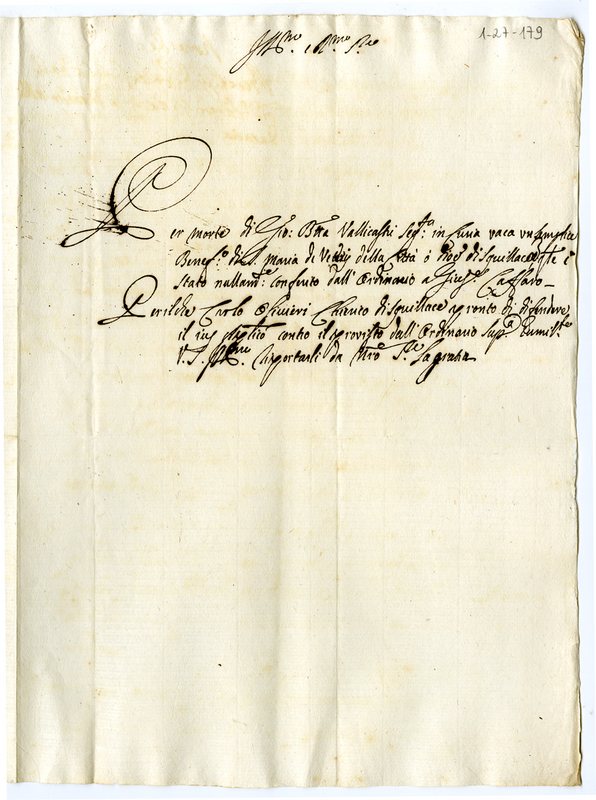 1-27-179
Ill.mo e R.mo Sig.re
Per morte di Gio: Btta Vallicassi seq.ta in Curia vaca un semplice
Benef.o di S. Maria de della Città ò Dioc. di Squillace, e
stato nullam.te conferito dall'Ordinario a Gius.e Caffaro
Perilche Carlo Olivieri Chierico di Squillace, pronto di difendere
il ius contro il provisto dall'Ordinario sup.ca humilm.te
V. S. Ill.ma impetrarli da N.ro S.re la gratia